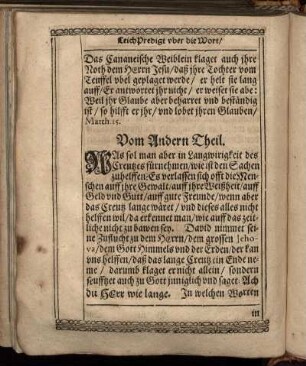 LeichPredigt vber die Wort/
Das Cananeische Weiblein klaget auch jhre
Noth dem HErrn Jesu/ daß jhre Tochter vom
Teuffel vbel geplaget werde/ er helt sie lang
auff/ Er antwortet jhr nicht/ er weiset sie abe:
Weil jhr Glaube aber beharret vnd beständig
ist/ so hilfft er jhr/ vnd lobet jhren Glauben/
Matth. 15.
Vom Andern Theil.
WAs sol man aber in Langwirigkeit des
Creutzes fürnehmen/ wie ist den Sachen
zuhelffen: Es verlassen sich offt die Men-
schen auff jhre Gewalt/ auff jhre Weißheit/ auff
Geld vnd Gutt/ auff gute Freunde/ wenn aber
das Creutz lange wäret/ vnd dieses alles nicht
helffen wil/ da erkennet man/ wie auff das zeit-
liche nicht zu bawen sey. David nimmet sei-
ne Zuflucht zu dem Herrn/ dem grossen Jeho-
va/ dem Gott Himmels vnd der Erden/ der kan
vns helffen/ daß das lange Creutz ein Ende ne-
me/ darumb klaget er nicht allein/ sondern
seufftzet auch zu Gott jnniglich vnd saget: Ach
du HErr wie lange. In welchen Worten
in